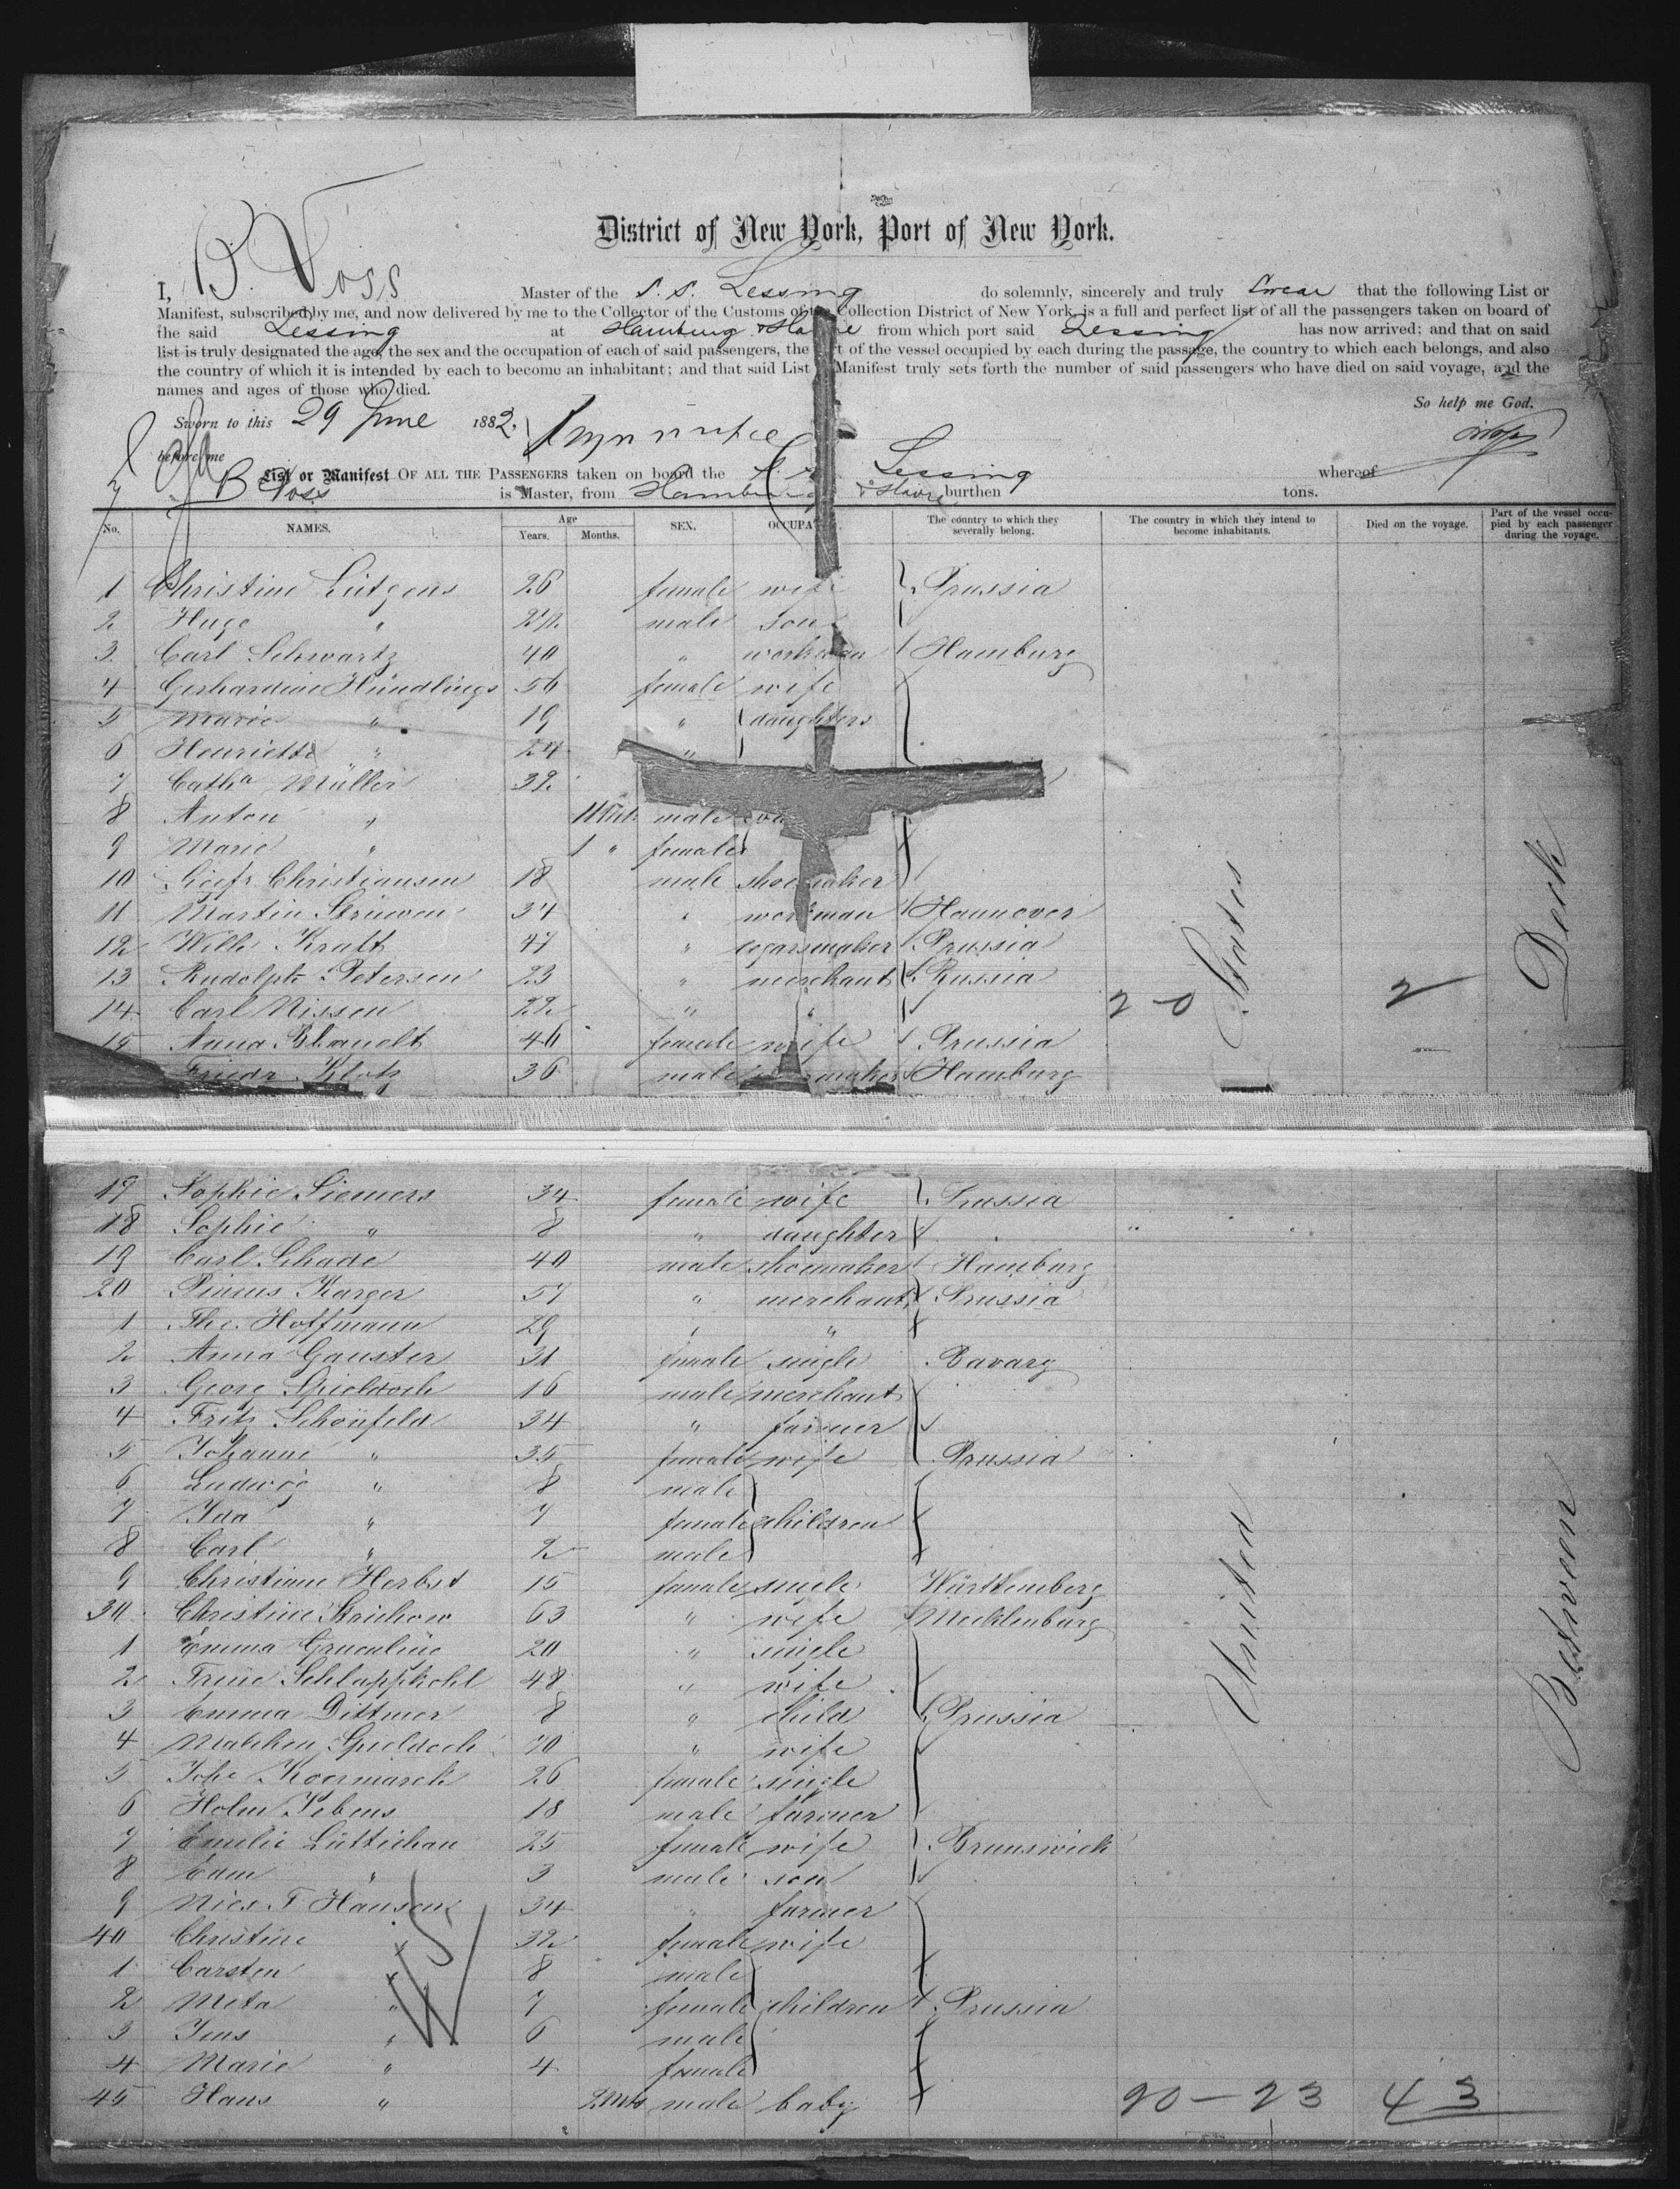 District of New York, Port of New York.
I, B. Voss Master of the S. S. Lessing do solemnly, sincerely and truly swear that the following List or
Manifest, subscribed by me, and now delivered by me to the Collector of the Customs of the Collection District of New York, is a full and perfect list of all the passengers taken on board of
the said Lessing at Hamburg & Havre from which port said Lessing has now arrived; and that on said
list is truly designated the age, the sex and the occupation of each of said passengers, the part of the vessel occupied by each during the passage, the country to which each belongs, and also
the country of which it is intended by each to become an inhabitant; and that said List Manifest truly sets forth the number of said passengers who have died on said voyage, and the
names and ages of those who died.
So help me God.
Sworn to this 29 June 1882.
before me
List or Manifest OF ALL THE PASSENGERS taken on board the S. S. Lessing whereof
B Voss is Master, from Hamburg & Havre burthen tons.
No. NAMES. Age Years. Months. SEX. OCCUPA The country to which they severally belong. The country in which they intend to become inhabitants. Died on the voyage. Part of the vessel occupied by each passenger during the voyage.
1 Christine Lütgens 26 female wife Prussia
2 Hugo " male son
3 Carl Schwartz 40 " workman Hamburg
4 Gerhardine Hündlings 56 female wife
5 Marie " 19 " daughters
6 Henriette " 24 "
7 Cath^a Müller 32
8 Anton " 11 Mth male
9 Marie " 1 " female
10 Christiansen 18 male shoemaker
11 Martin Strüwen 34 " workman Hannover
12 Wilh. Kraft 47 " cigarsmaker Prussia
13 Rudolph Petersen 23 " merchant Russia
14 Carl Nissen 22 " "
2-0 States 2 Deck
15 Anna Brandt 46 female wife Prussia
Friedr. Klotz 36 male maker Hamburg
17 Sophie Siemers 34 female wife Prussia
18 Sophie " 8 " daughter
19 Carl Schade 40 male shoemaker Hamburg
20 Pinius Karger 57 " merchant Prussia
1 The. Hoffmann 29 " "
2 Anna Gauster 31 female single Bavary
3 Georg Spieldoch 16 male merchant
4 Fritz Schönfeld 34 " farmer
5 Johanne " 35 female wife Prussia
6 Ludwig " 8 male
7 Ida " 7 female children
8 Carl " 2 male
9 Christiane Herbst 15 female single Württemberg
30 Christine Strichow 63 " wife Mecklenburg
1 Emma Gruenline 20 " single
2 Trine Schlappkohl 48 " wife
3 Emma Dittmer 8 " child Prussia
4 Malchen Spieldoch 70 " wife
5 Joh^e Koermarck 26 female single
6 Holm Tebens 18 male farmer
7 Emilie Lüttichau 25 female wife Brunswick
8 Edm " 3 male son
9 Nics. F Hansen 34 " farmer
40 Christine " 32 female wife
1 Carsten " 8 male
2 Meta " 7 female children Prussia
3 Jens " 6 male
4 Marie " 4 female
45 Hans " 2 Mts male baby
United
Between
20-23 43